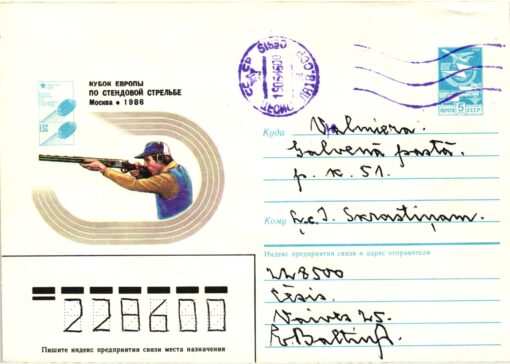 КУБОК ЕВРОПЫ
ПО СТЕНДОВОЙ СТРЕЛЬБЕ
Москва • 1986
ПОЧТА 5 СССР
Куда Valmiera.
Galvenā pastā.
p. k. 51.
Кому I. Skrastiņam.
Индекс предприятия связи и адрес отправителя
228500
Cēsis.
Vaives 25.
228600
Пишите индекс предприятия связи места назначения